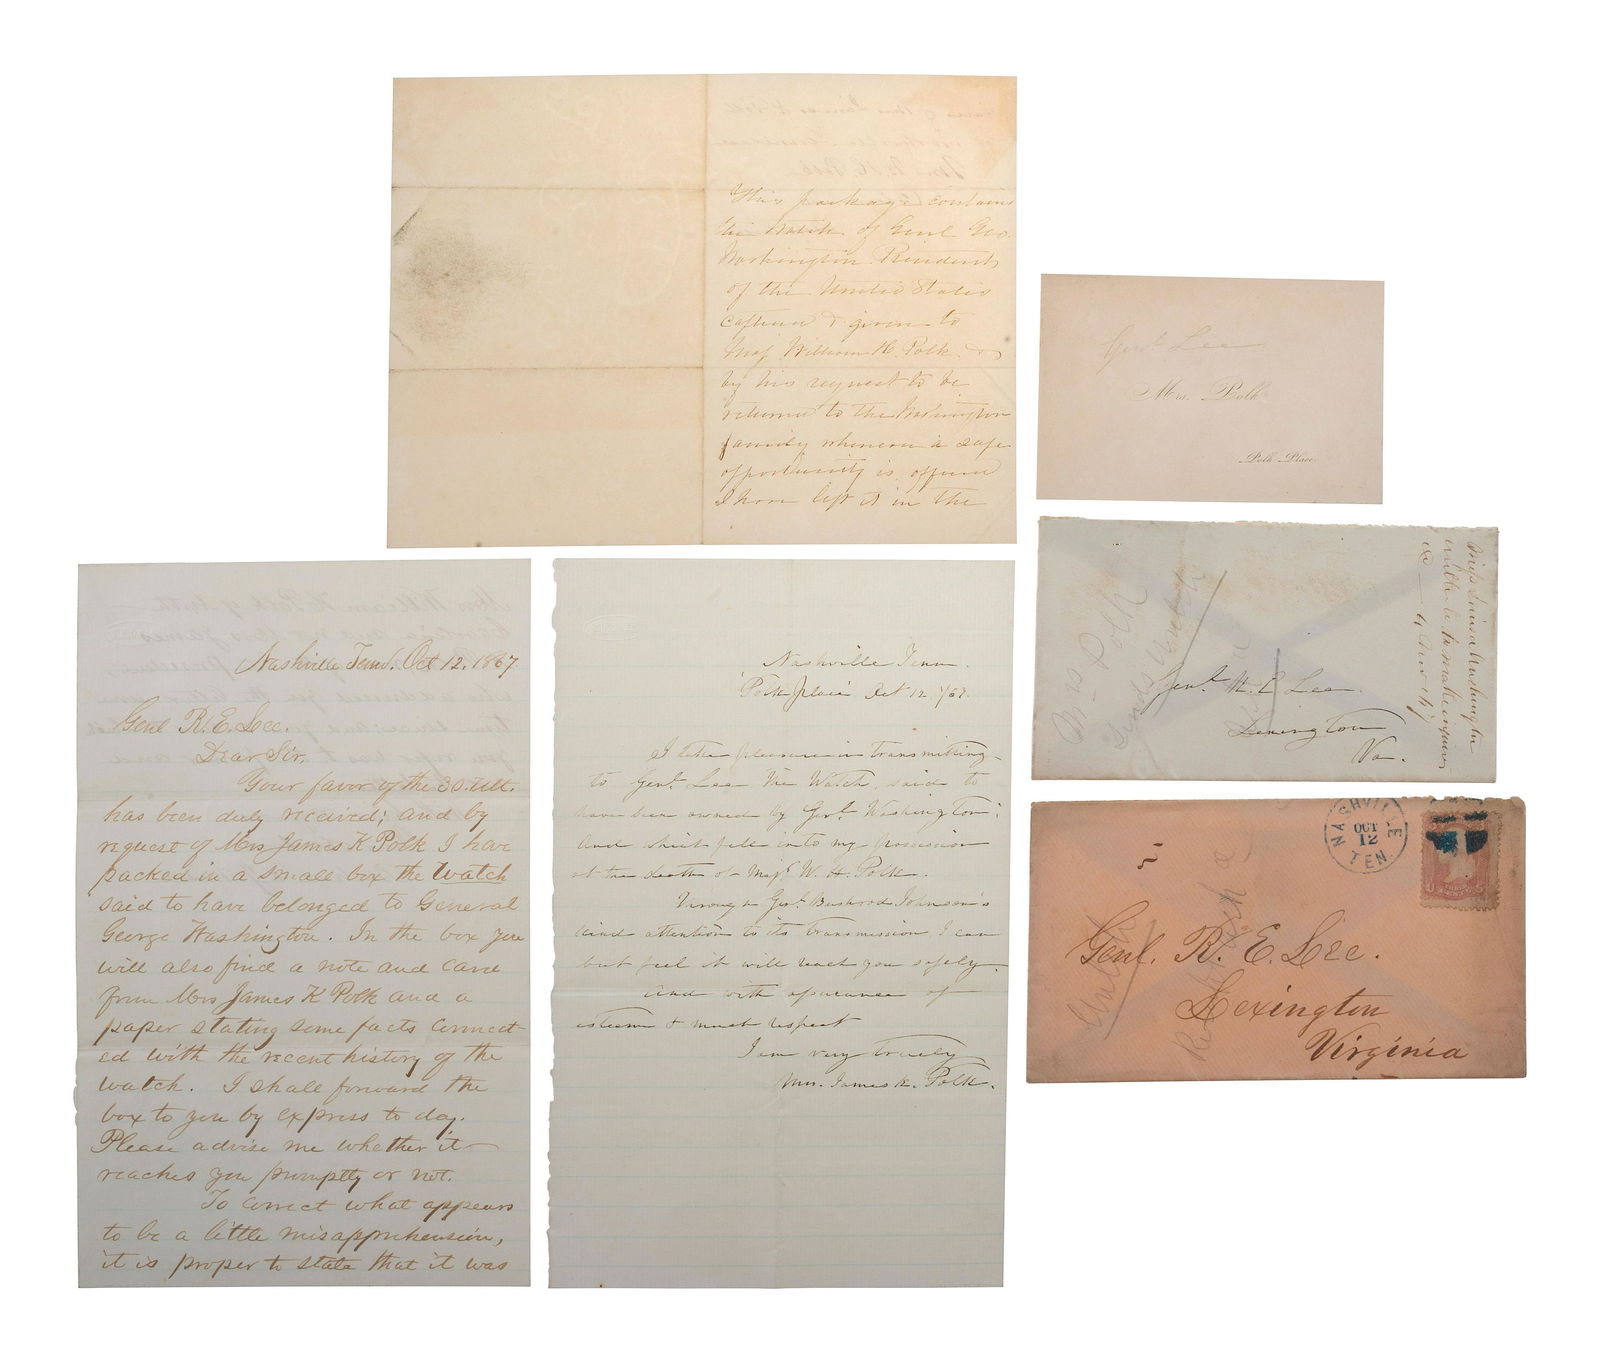 This package contains
the Watch of Genl Geo.
Washington President
of the United States
captured & given to
Maj William H. Polk &
by his request to be
returned to the Washington
family whenever a safe
opportunity is offered
I have left it in the
Genl. Lee
Mrs. Polk
Polk Place
Nashville Tenn. Oct 12. 1867
Genl R. E. Lee.
Dear Sir,
Your favor of the 30. ult.
has been duly received; and by
request of Mrs James K Polk I have
packed in a small box the watch
said to have belonged to General
George Washington. In the box you
will also find a note and card
from Mrs James K Polk and a
paper stating some facts connect-
ed with the recent history of the
watch. I shall forward the
box to you by express to day.
Please advise me whether it
reaches you promptly or not.
To correct what appears
to be a little misapprehension,
it is proper to state that it was
Nashville Tenn.
Polk place Oct 12./67.
I take pleasure in transmitting
to Genl. Lee the Watch, said to
have been owned by Genl. Washington;
and which fell into my possession
at the death of Majr. W. H. Polk.
Through Genl. Bushrod Johnson's
kind attention to its transmission I can
but feel it will reach you safely.
And with assurance of
esteem & much respect
I am very truly
Mrs. James K. Polk.
Mrs Polk
Genl. R. E. Lee.
Lexington
Va.
Miss Louisa Washington
NASHVILLE
OCT
12
TEN.
Genl. R. E. Lee.
Lexington
Virginia